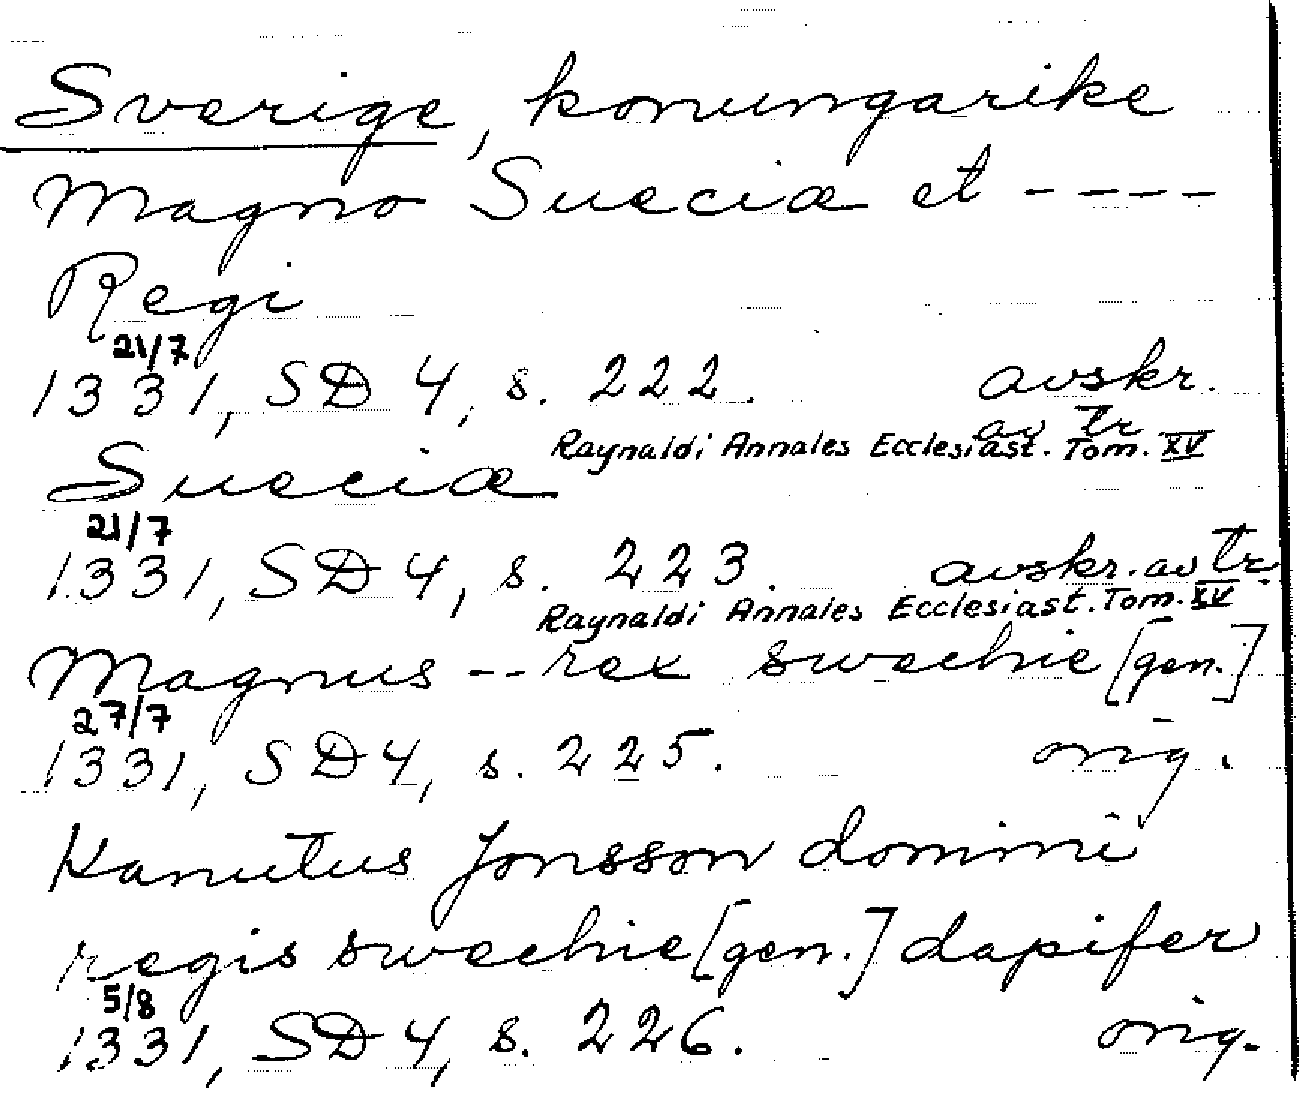 Sverige, konungarike
Magno Sueciæ et ----
Regi
21/7
1331, SD 4, s. 222. avskr.
av tr
Raynaldi Annales Ecclesiast. Tom. XV
Sueciæ
21/7
1331, SD 4, s. 223. avskr. av tr.
Raynaldi Annales Ecclesiast. Tom. XV
Magnus -- rex swechie [gen.]
27/7
1331, SD 4, s. 225. orig.
Kanutus Jonsson domini
regis swechie [gen.] dapifer
5/8
1331, SD 4, s. 226. orig.